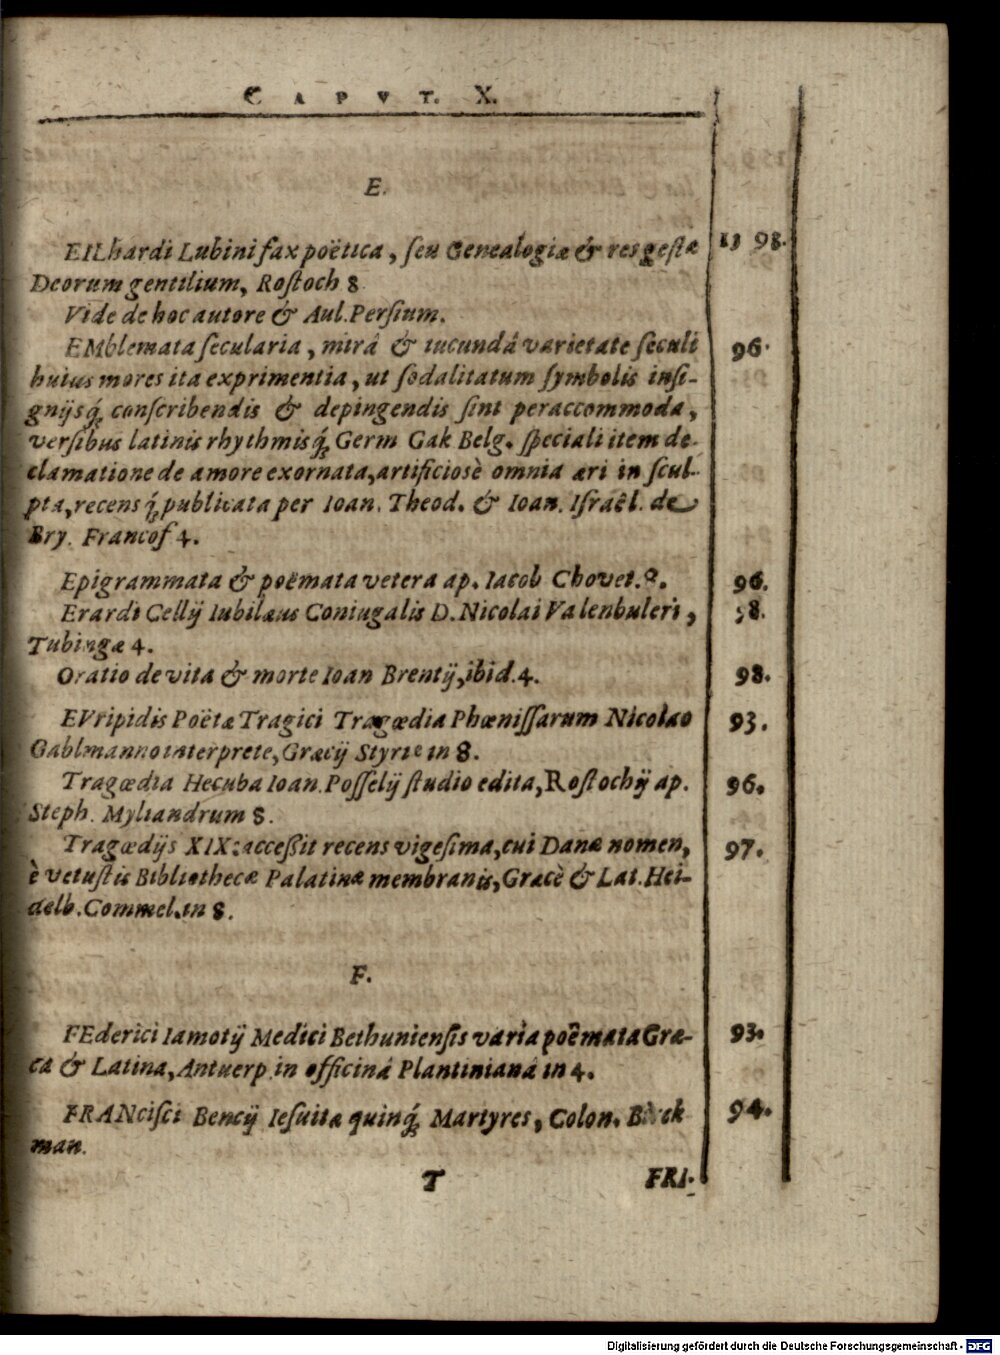 CAPVT. X.
E.
EILhardi Lubini fax poëtica, ſeu Genealogiæ & res geſtæ 15 98.
Deorum gentilium, Roſtoch 8
Vide de hoc autore & Aul. Perſium.
EMblemata ſecularia, mirâ & iucundâ varietate ſeculi 96.
huius mores ita exprimentia, ut ſodalitatum ſymbolis inſi-
gnijsq́; conſcribendis & depingendis ſint peraccommoda,
verſibus latinis rhythmisq́; Germ Gak Belg. ſpeciali item de-
clamatione de amore exornata, artificiosè omnia æri in ſcul-
pta, recens q́; publicata per Ioan. Theod. & Ioan. Iſraêl. de
Bry. Francof 4.
Epigrammata & poëmata vetera ap. Iacob Chovet. 8. 96.
Erardi Cellij Iubilæus Coniugalis D. Nicolai Valenbuleri, 98.
Tubingæ 4.
Oratio de vita & morte Ioan Brentij, ibid. 4. 98.
EVripidis Poëtæ Tragici Tragœdia Phœniſſarum Nicolao 93.
Gablmanno interprete, Græcij Styriæ in 8.
Tragœdia Hecuba Ioan. Poſſelij ſtudio edita, Roſtochij ap. 96.
Steph. Myliandrum 8.
Tragœdijs XIX: acceßit recens vigeſima, cui Danæ nomen, 97.
è vetuſtis Bibliothecæ Palatinæ membranis, Græcè & Lat. Hei-
delb. Commel. in 8.
F.
FEderici Iamotij Medici Bethunienſis varia poëmata Græ- 93.
ca & Latina, Antuerp. in officinâ Plantinianâ in 4.
FRANciſci Bencij Ieſuitæ quinq́; Martyres, Colon. Birck 94.
man.
T FRI-
Digitalisierung gefördert durch die Deutsche Forschungsgemeinschaft - DFG